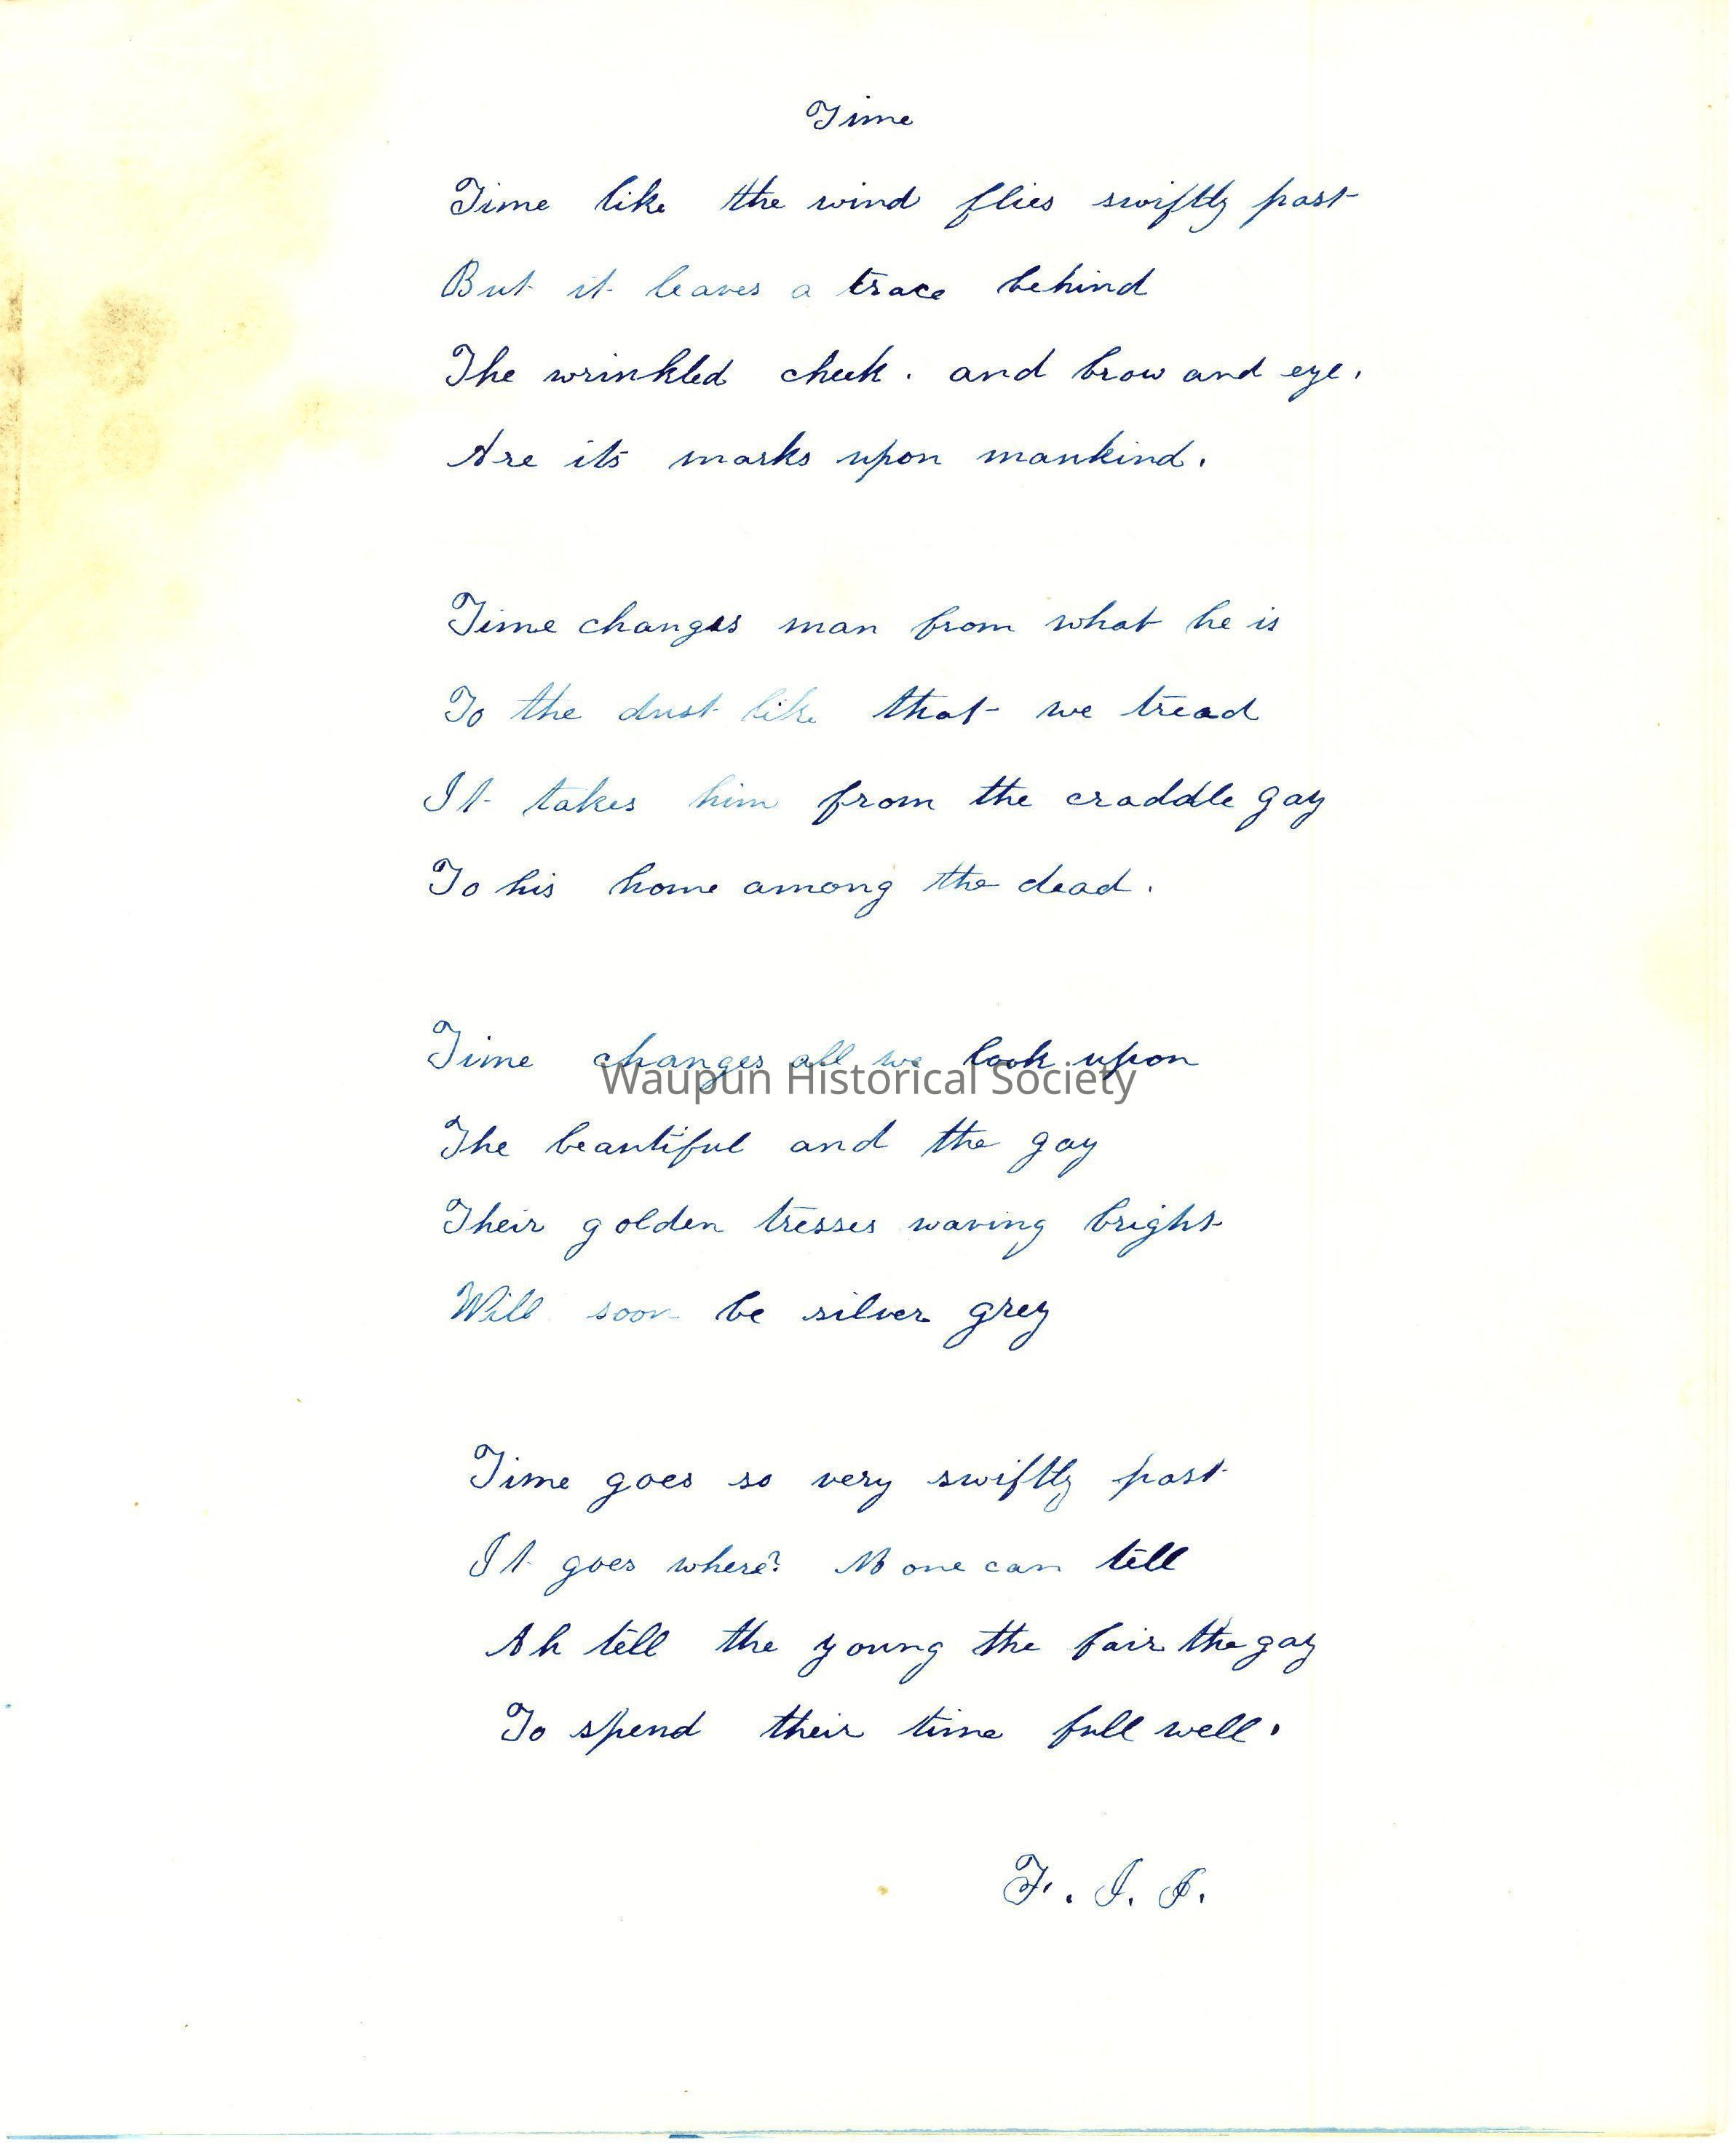 Time
Time like the wind flies swiftly past
But it leaves a trace behind
The wrinkled cheek. and brow and eye,
Are its marks upon mankind.
Time changes man from what he is
To the dust like that we tread
It takes him from the craddle gay
To his home among the dead.
Time changes all we look upon
Waupun Historical Society
The beautiful and the gay
Their golden tresses waving bright
Will soon be silver grey
Time goes so very swiftly past
It goes where? No one can tell
Ah tell the young the fair the gay
To spend their time full well.
F. I. F.